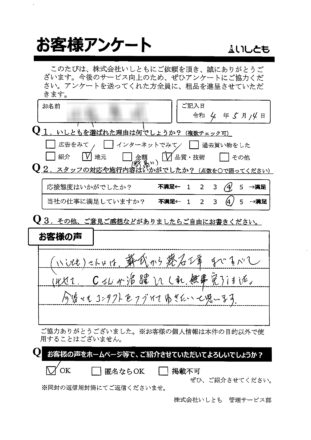 お客様アンケート
いしとも
このたびは、株式会社いしともにご依頼を頂き、誠にありがとうご
ざいます。今後のサービス向上のため、ぜひアンケートにご協力くださ
い。アンケートを送ってくれた方全員に、粗品を進呈させていただき
ます。
お名前
ご記入日
令和 4 年 5月14日
Q1. いしともを選ばれた理由は何でしょうか?(複数チェック可)
広告をみて
インターネットでみて
過去買い物をした
紹介
地元
金額
品質・技術
その他
Q2. スタッフの対応や施行内容はいかがでしたか?(点数を○で囲ってください)
応接態度はいかがでしたか? 不満足← 1 2 3 4 5 →満足
当社の仕事に満足していますか? 不満足← 1 2 3 4 5 →満足
Q3. その他、ご意見ご感想などがありましたらご自由にお書きください。
お客様の声
(いしとも)さんは、
Cさんが活躍してくれ、無事完了
今後もコンタクトを
ご協力ありがとうございました。※お客様の個人情報は本件の目的以外で使
用することはございません。
Q お客様の声をホームページ等で、ご紹介させていただいてよろしいでしょうか?
OK
匿名ならOK
掲載不可
ぜひ、ご紹介させてください。
※同封の返信用封筒にてご返信くださいませ。
株式会社いしとも 管理サービス部